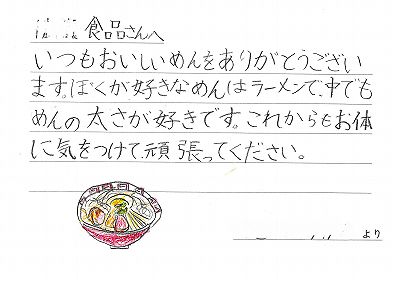 食品さんへ
いつもおいしいめんをありがとうござい
ます。ぼくが好きなめんはラーメンで、中でも
めんの太さが好きです。これからもお体
に気をつけて、頑張ってください。
より